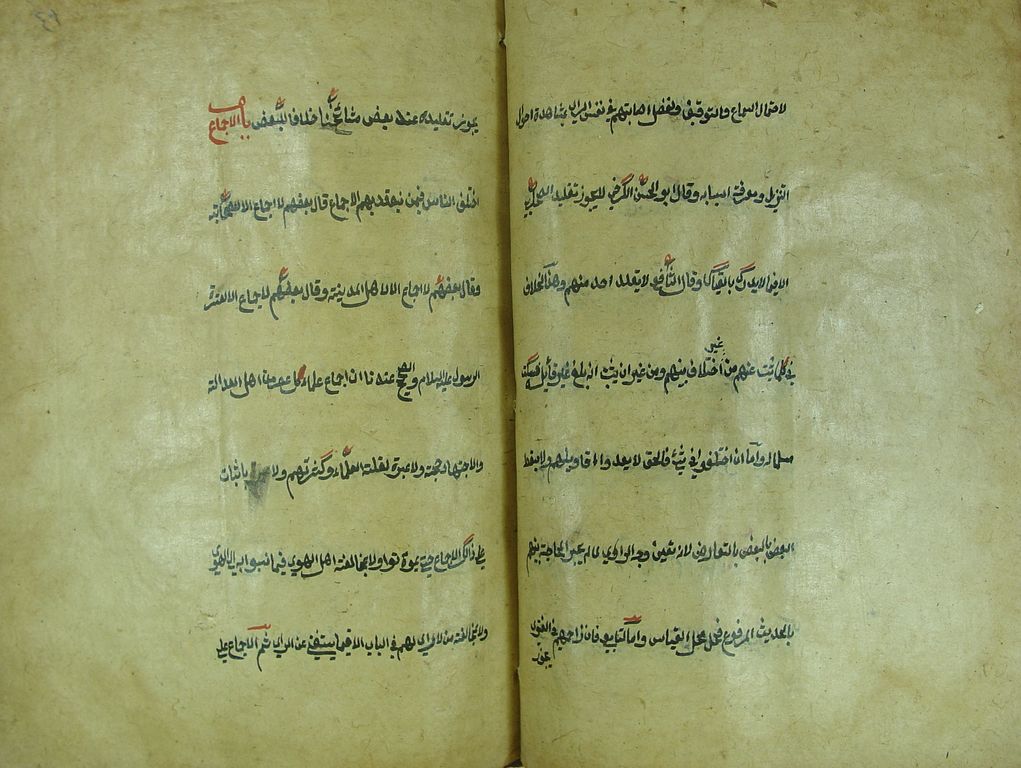 لاحتمال السماع والتوقيف ولفضل اصابتهم في نفس الراي بمشاهدة احوال
التنزيل ومعرفة اسبابه وقال ابو الحسن الكرخي لا يجوز تقليد الصحابي
الا فيما لا يدرك بالقياس وقال الشافعي لا يقلد احد منهم وهذا الخلاف
في كل ما ثبت عنهم من غير اختلاف بينهم ومن غير ان يثبت انه بلغ غير قائله فسكت
مسلما له واما ان اختلفوا في شيء فالحق لا يعدو اقاويلهم ولا يسقط
البعض بالبعض بالتعارض لانه تعين وجه الراي لما لم يجر المحاجة بينهم
بالحديث المرفوع فحل محل القياس واما التابعي فان زاحمهم في الفتوى
يجوز
يجوز تقليده عند بعض مشائخنا خلافا للبعض باب الاجماع
اختلف الناس فيمن ينعقد بهم الاجماع قال بعضهم لا اجماع الا للصحابة
وقال بعضهم لا اجماع الا لاهل المدينة وقال بعضهم لا اجماع الا لعترة
الرسول عليه السلام والصحيح عندنا ان اجماع علماء كل عصر من اهل العدالة
والاجتهاد حجة ولا عبرة لقلة العلماء وكثرتهم ولا بالثبات
على ذلك الاجماع حتى يموتوا ولا بمخالفة اهل الهوى فيما نسبوا به الى الهوى
ولا بمخالفة من لا راي لهم في الباب الا فيما يستغنى عن الراي ثم الاجماع على